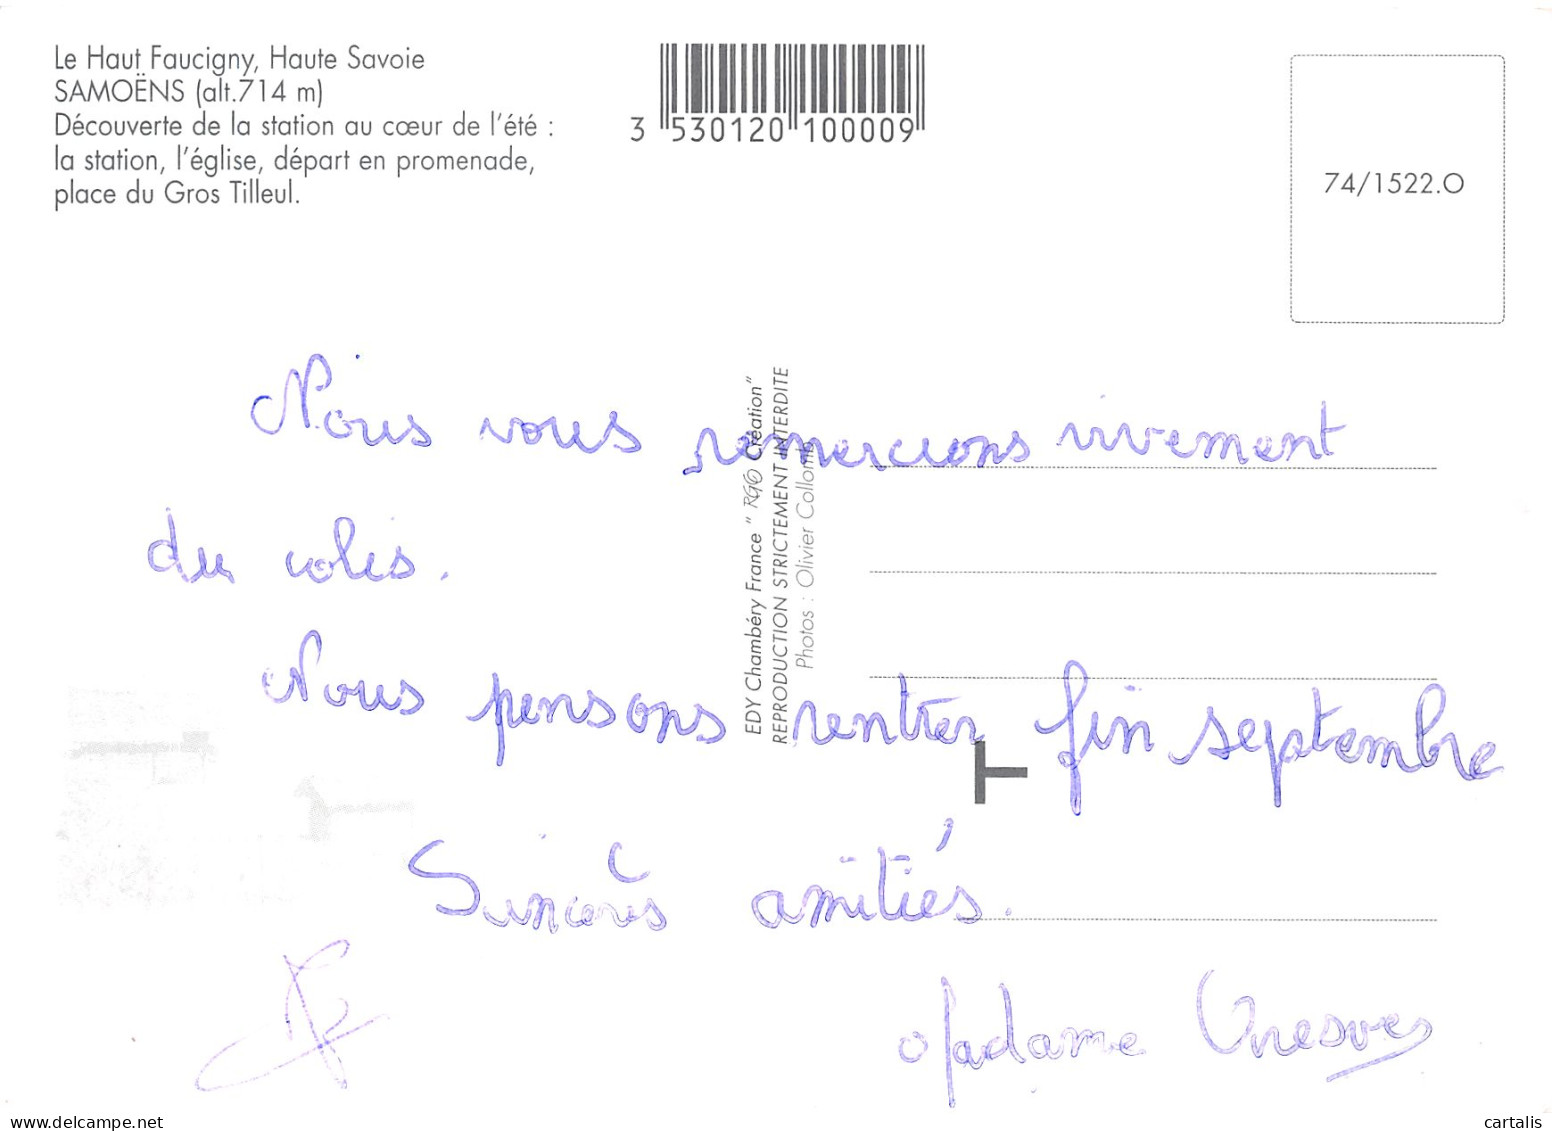 Le Haut Faucigny, Haute Savoie
SAMOËNS (alt.714 m)
Découverte de la station au cœur de l'été :
la station, l'église, départ en promenade,
place du Gros Tilleul.
3 530120 100009
74/1522.O
EDY Chambéry France " RGO Création"
REPRODUCTION STRICTEMENT INTERDITE
Photos : Olivier Collomb
Nous vous remercions vivement
du colis.
Nous pensons rentrer fin septembre
Sincères amitiés.
Madame
www.delcampe.net
cartalis